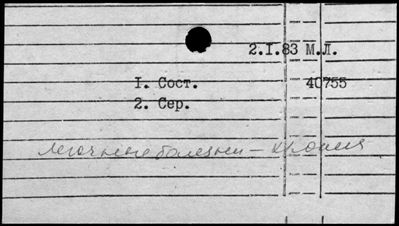 2.I.83 М.Л.
I. Сост. 40755
2. Сер.
легочные болезни –